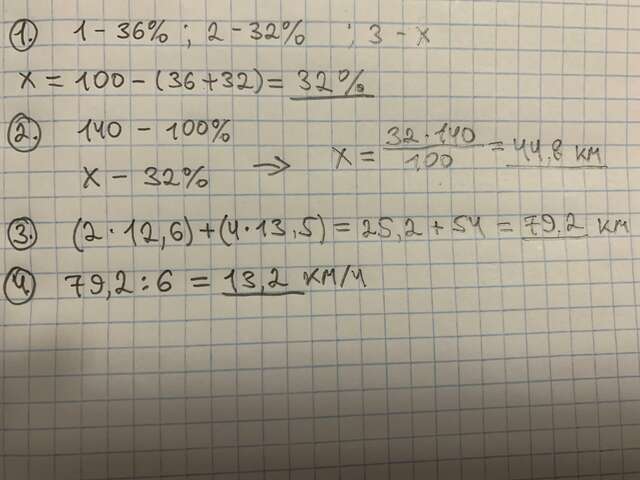 1. 1 - 36% ; 2 - 32% ; 3 - x
x = 100 - (36 + 32) = 32%
2. 140 - 100%
x - 32% → x = 32 · 140 / 100 = 44,8 км
3. (2 · 12,6) + (4 · 13,5) = 25,2 + 54 = 79,2 км
4. 79,2 : 6 = 13,2 км/ч